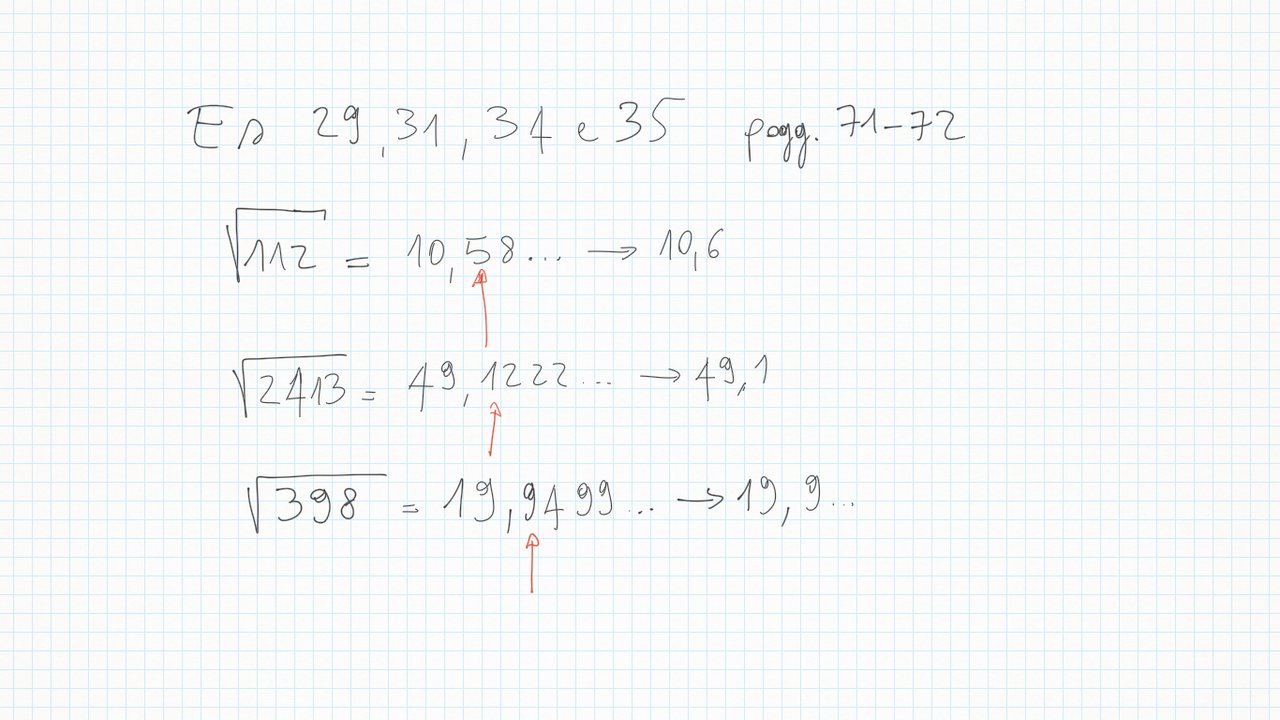 Es 29, 31, 34 e 35 pagg. 71-72
√112 = 10,58... → 10,6
√2413 = 49,1222... → 49,1
√398 = 19,9499... → 19,9...